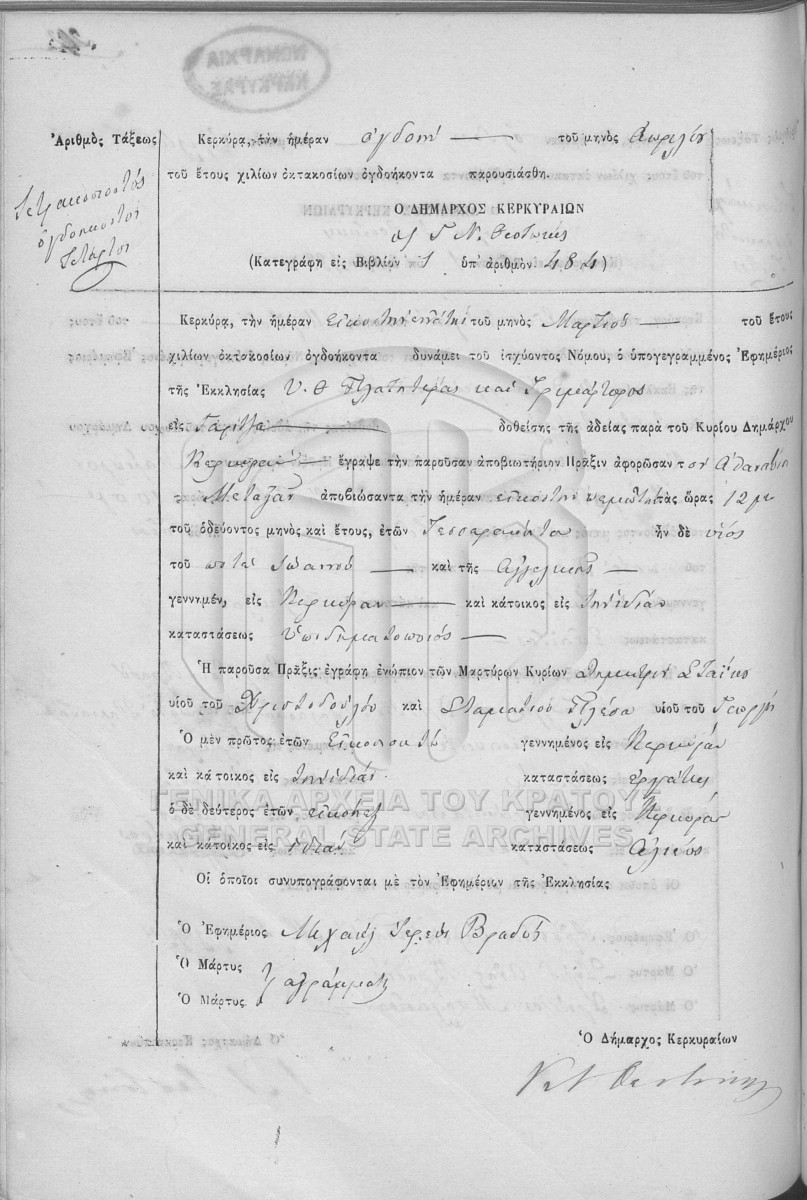 ΝΟΜΑΡΧΙΑ
ΚΕΡΚΥΡΑΣ
Ἀριθμὸς Τάξεως
Τετρακοσιοστὸς
ὀγδοηκοστος
Τέταρτος
Κερκύρα, τὴν ἡμέραν ὀγδοην τοῦ μηνὸς Ἀπριλίου
τοῦ ἔτους χιλίων ὀκτακοσίων ὀγδοήκοντα παρουσιάσθη.
Ο ΔΗΜΑΡΧΟΣ ΚΕΡΚΥΡΑΙΩΝ
Γ Ν. Θεοτόκης
(Κατεγράφη εἰς Βιβλίον 1 ὑπ' ἀριθμὸν 484)
Κερκύρᾳ, τὴν ἡμέραν εἰκοστὴν τοῦ μηνὸς Μαρτίου τοῦ ἔτους
χιλίων ὀκτακοσίων ὀγδοήκοντα δυνάμει τοῦ ἰσχύοντος Νόμου, ὁ ὑπογεγραμμένος Ἐφημέριος
τῆς Ἐκκλησίας Υ. Θ Πλατητέρας καὶ Τριμάρτυρος
εἰς Γαρίτζα δοθείσης τῆς ἀδείας παρὰ τοῦ Κυρίου Δημάρχου
Κερκυραίων ἔγραψε τὴν παροῦσαν ἀποβιωτήριον Πρᾶξιν ἀφορῶσαν τον Ἀθανάσιον
Μεταξᾶν ἀποβιώσαντα τὴν ἡμέραν εἰκοστὴν τὰς ὥρας 12
τοῦ ὁδεύοντος μηνὸς καὶ ἔτους, ἐτῶν Τεσσαρακοντα ἦν δὲ υἱὸς
τοῦ ποτέ Ἰωάννου καὶ τῆς Ἀγγελικῆς
γεννημέν, εἰς Κερκύραν καὶ κάτοικος εἰς τὴν ἰδίαν
καταστάσεως Ὑποδηματοποιός
Ἡ παροῦσα Πρᾶξις ἐγράφη ἐνώπιον τῶν Μαρτύρων Κυρίων Δημητρίου Σταϊκο
υἱοῦ τοῦ Χριστοδούλου καὶ Σταματίου Πλέσα υἱοῦ τοῦ Γεωργίου
Ὁ μὲν πρῶτος ἐτῶν Εἰκοσιοκτὼ γεννημένος εἰς Κερκύραν
καὶ κάτοικος εἰς τὴν ἰδίαν καταστάσεως ἐργάτης
ὁ δὲ δεύτερος ἐτῶν εἰκοσιἑξ γεννημένος εἰς Κερκύραν
καὶ κάτοικος εἰς ἰδίαν καταστάσεως Ἁλιεύς
Οἱ ὁποῖοι συνυπογράφονται μὲ τὸν Ἐφημέριον τῆς Ἐκκλησίας
Ὁ Ἐφημέριος Μιχαὴλ Ἱερεὺς Βραδὺς
Ὁ Μάρτυς
ἀγράμματοι
Ὁ Μάρτυς
Ὁ Δήμαρχος Κερκυραίων
Γ Ν Θεοτόκης
ΓΕΝΙΚΑ ΑΡΧΕΙΑ ΤΟΥ ΚΡΑΤΟΥΣ
GENERAL STATE ARCHIVES